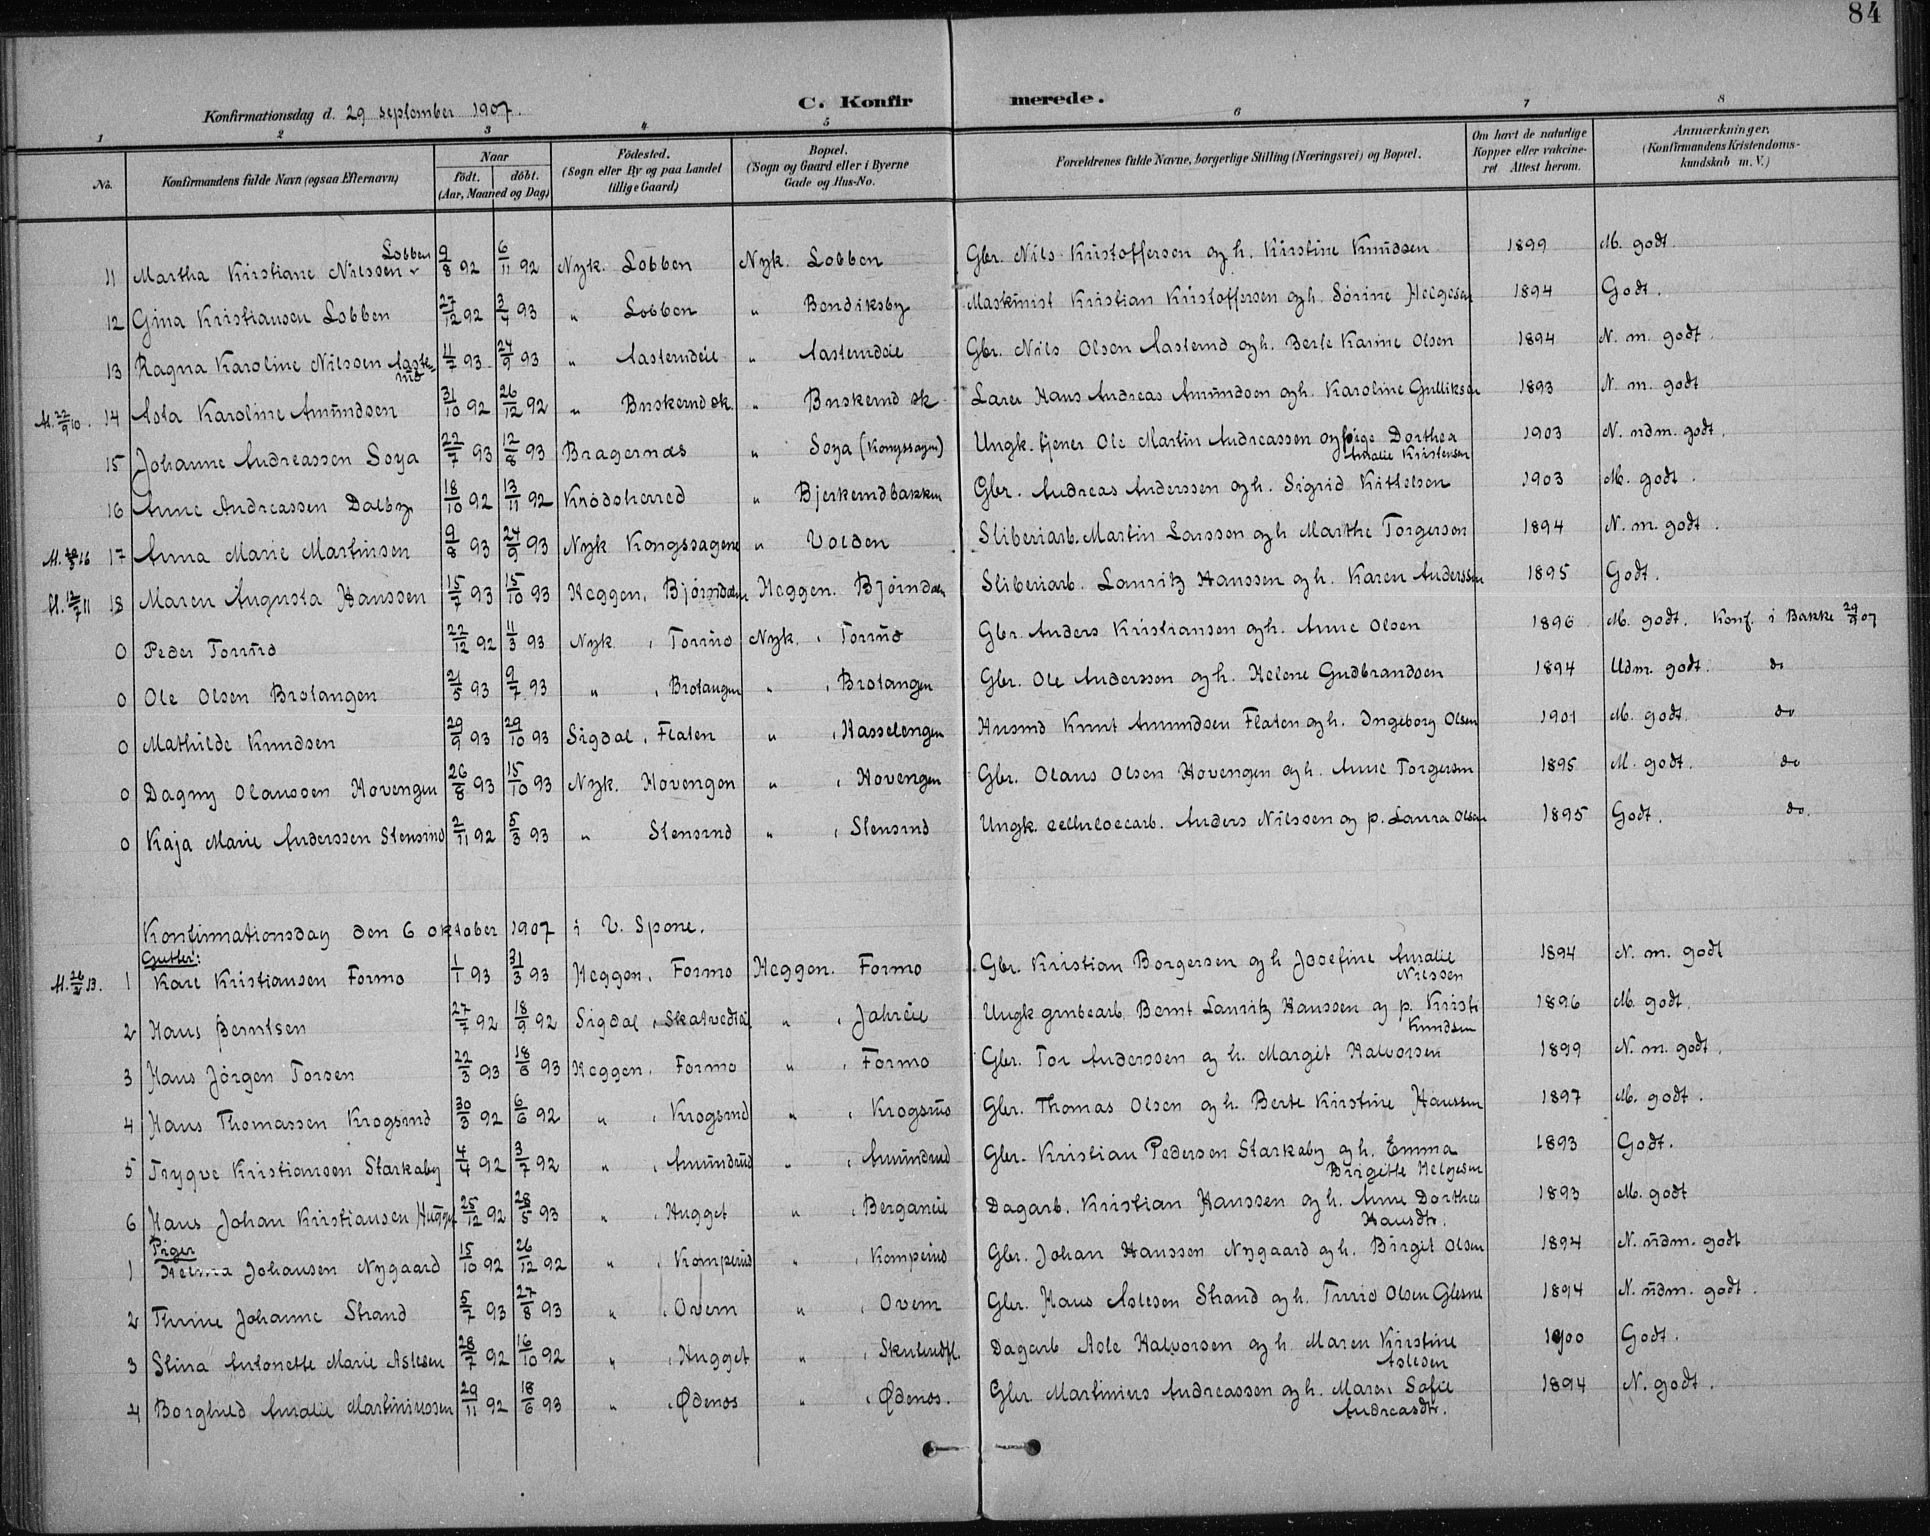 84
Konfirmationsdag d. 29 september 1907.
C. Konfirmerede.
1 2 3 4 5 6 7 8
No. Konfirmandens fulde Navn (ogsaa Efternavn) Naar født. døbt. (Aar, Maaned og Dag) Fødested. (Sogn eller By og paa Landet tillige Gaard) Bopæl. (Sogn og Gaard eller i Byerne Gade og Hus-No. Forældrenes fulde Navne, borgerlige Stilling (Næringsvei) og Bopæl. Om havt de naturlige Kopper eller vakcineret Attest herom. Anmærkninger. (Konfirmandens Kristendomskundskab m. V.)
11 Martha Kirstiane Nilssen Lobben 9/8 92 6/11 92 Nyk. Lobben Nyk. Lobben Gbr. Nils Kristoffersen og h. Kirstine Knudsen 1899 M. godt.
12 Gina Kristiansen Lobben 27/12 92 3/4 93 " Lobben " Bendiksby Maskinist Kristian Kristoffersen og h. Sørine Helgesen 1894 Godt.
13 Ragna Karoline Nilssen Aasterud 11/7 93 24/9 93 " Aasterudeie " Aasterudeie Gbr. Nils Olsen Aasterud og h. Berte Karine Olsen 1894 N. m. godt.
M. 22/9 10. 14 Asta Karoline Amundsen 31/10 92 26/12 92 " Buskerud sk. " Buskerud sk Lærer Hans Andreas Amundsen og h. Karoline Gulliksen 1893 N. m. godt
15 Johanne Andreassen Soya 22/7 93 12/8 93 Bragernæs " Soya (Kongssagen) Ungk. tjener Ole Martin Andreassen og pige Dorthea Amalie Kristensen 1903 N. udm. godt.
16 Anne Andreassen Dalby 18/10 92 13/11 92 Krødsherred " Bjerkerudbakken Gbr. Andreas Anderssen og h. Sigrid Kittelsen 1903 M. godt.
17 Anna Marie Martinsen 9/8 93 24/9 93 Nyk Kongssagene " Volden Sliberiarb. Martin Larssen og h Marthe Torgersen 1894 N. m. godt.
M. 12/7 11 18 Maren Augusta Hanssen 15/7 93 15/10 93 Heggen, Bjørndalen Heggen. Bjørndalen Sliberiarb. Lauritz Hanssen og h. Karen Anderssen 1895 Godt.
0 Peder Torrud 22/12 92 11/3 93 Nyk. , Torrud Nyk. , Torrud Gbr. Anders Kristiansen og h. Anne Olsen 1896 M. godt. Konf. i Bakke 29/9 07
0 Ole Olsen Brotangen 21/5 93 9/7 93 " , Brotangen " , Brotangen Gbr. Ole Anderssen og h. Helene Gudbrandsen 1894 Udm. godt. do
0 Mathilde Knudsen 29/9 93 29/10 93 Sigdal, Flaten " , Hasselengen Husmd Knut Amundsen Flaten og h. Ingeborg Olsen 1901 M. godt. do
0 Dagny Olaussen Hovengen 26/8 93 15/10 93 Nyk. Hovengen " , Hovengen Gbr. Olaus Olsen Hovengen og h. Anne Torgersen 1895 M. godt. do
0 Kaja Marie Anderssen Stensrud 2/11 92 5/3 93 " Stensrud " , Stensrud Ungk. cellulosearb. Anders Nilssen og p. Laura Olsen 1895 Godt. do.
Konfirmationsdag den 6 oktober 1907 i V. Spone.
Gutter:
M. 26/2 13. 1 Karl Kristiansen Formo 1/1 93 31/3 93 Heggen. Formo Heggen. Formo Gbr. Kristian Borgersen og h Josefine Amalie Nilssen 1894 N. m. godt
2 Hans Berntsen 27/7 92 18/9 92 Sigdal , Skatvedteie " , Jahreie Ungk grubearb. Bernt Lauritz Hanssen og p. Kirsti Knudsen 1896 M. godt.
3 Hans Jørgen Torsen 22/3 93 18/6 93 Heggen. Formo " , Formo Gbr. Tor Anderssen og h. Margit Halvorsen 1899 N. m. godt.
4 Hans Thomassen Krogsrud 30/3 92 6/6 92 " , Krogsrud " , Krogsrud Gbr. Thomas Olsen og h. Berte Kirstine Hanssen 1897 M. godt.
5 Trygve Kristiansen Starkaby 4/4 92 3/7 92 " , Amundrud " , Amundrud Gbr. Kristian Pedersen Starkaby og h. Emma Birgitte Helgesen 1893 Godt.
6 Hans Johan Kristiansen Hugget 25/12 92 28/5 93 " , Hugget " , Berganeie Dagarb. Kristian Hanssen og h. Anne Dorthea Hansdtr. 1893 M. godt
Piger
1 Helma Johansen Nygaard 15/10 92 26/12 92 " , Komperud " , Komperud Gbr. Johan Hanssen Nygaard og h. Birgit Olsen 1894 N. udm. godt
2 Thrine Johanne Strand 5/7 93 27/8 93 " , Overn " , Overn Gbr. Hans Aslesen Strand og h. Turid Olsen Glesne 1894 N. udm. godt.
3 Stina Antonette Marie Aslesen 28/7 92 16/10 92 " , Hugget " , Skuterudfl. Dagarb Asle Halvorsen og h. Maren Kirstine Aslesen 1900 Godt.
4 Borghild Amalie Martiniussen 29/11 92 18/6 93 " , Ødenes " , Ødenes. Gbr Martinius Andreassen og h. Maren Sofie Andreasdtr. 1894 N. godt.